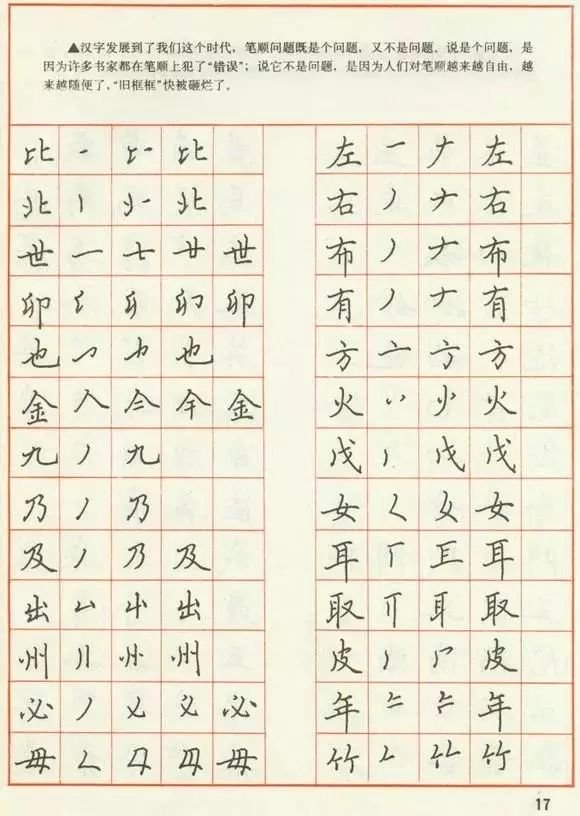 ▲汉字发展到了我们这个时代，笔顺问题既是个问题，又不是问题。说是个问题，是
因为许多书家都在笔顺上犯了“错误”；说它不是问题，是因为人们对笔顺越来越自由，越
来越随便了，“旧框框”快被砸烂了。
比 一 比
北 丨 北
世 一 七 廿 世
卯 卯
也 也
金 人 亼 今 金
九 丿 九
乃 丿 乃
及 丿 乃 及
出 凵 屮 出
州 州
必 丿 必
毋 毋
左 一 𠂇 左
右 丿 𠂇 右
布 丿 𠂇 布
有 丿 𠂇 有
方 亠 方 方
火 丷 火
戊 丿 戊 戊
女 𡿨 女 女
耳 丅 耳
取 耳 取
皮 丿 皮
年 年
竹 𠂉 竹 竹
17